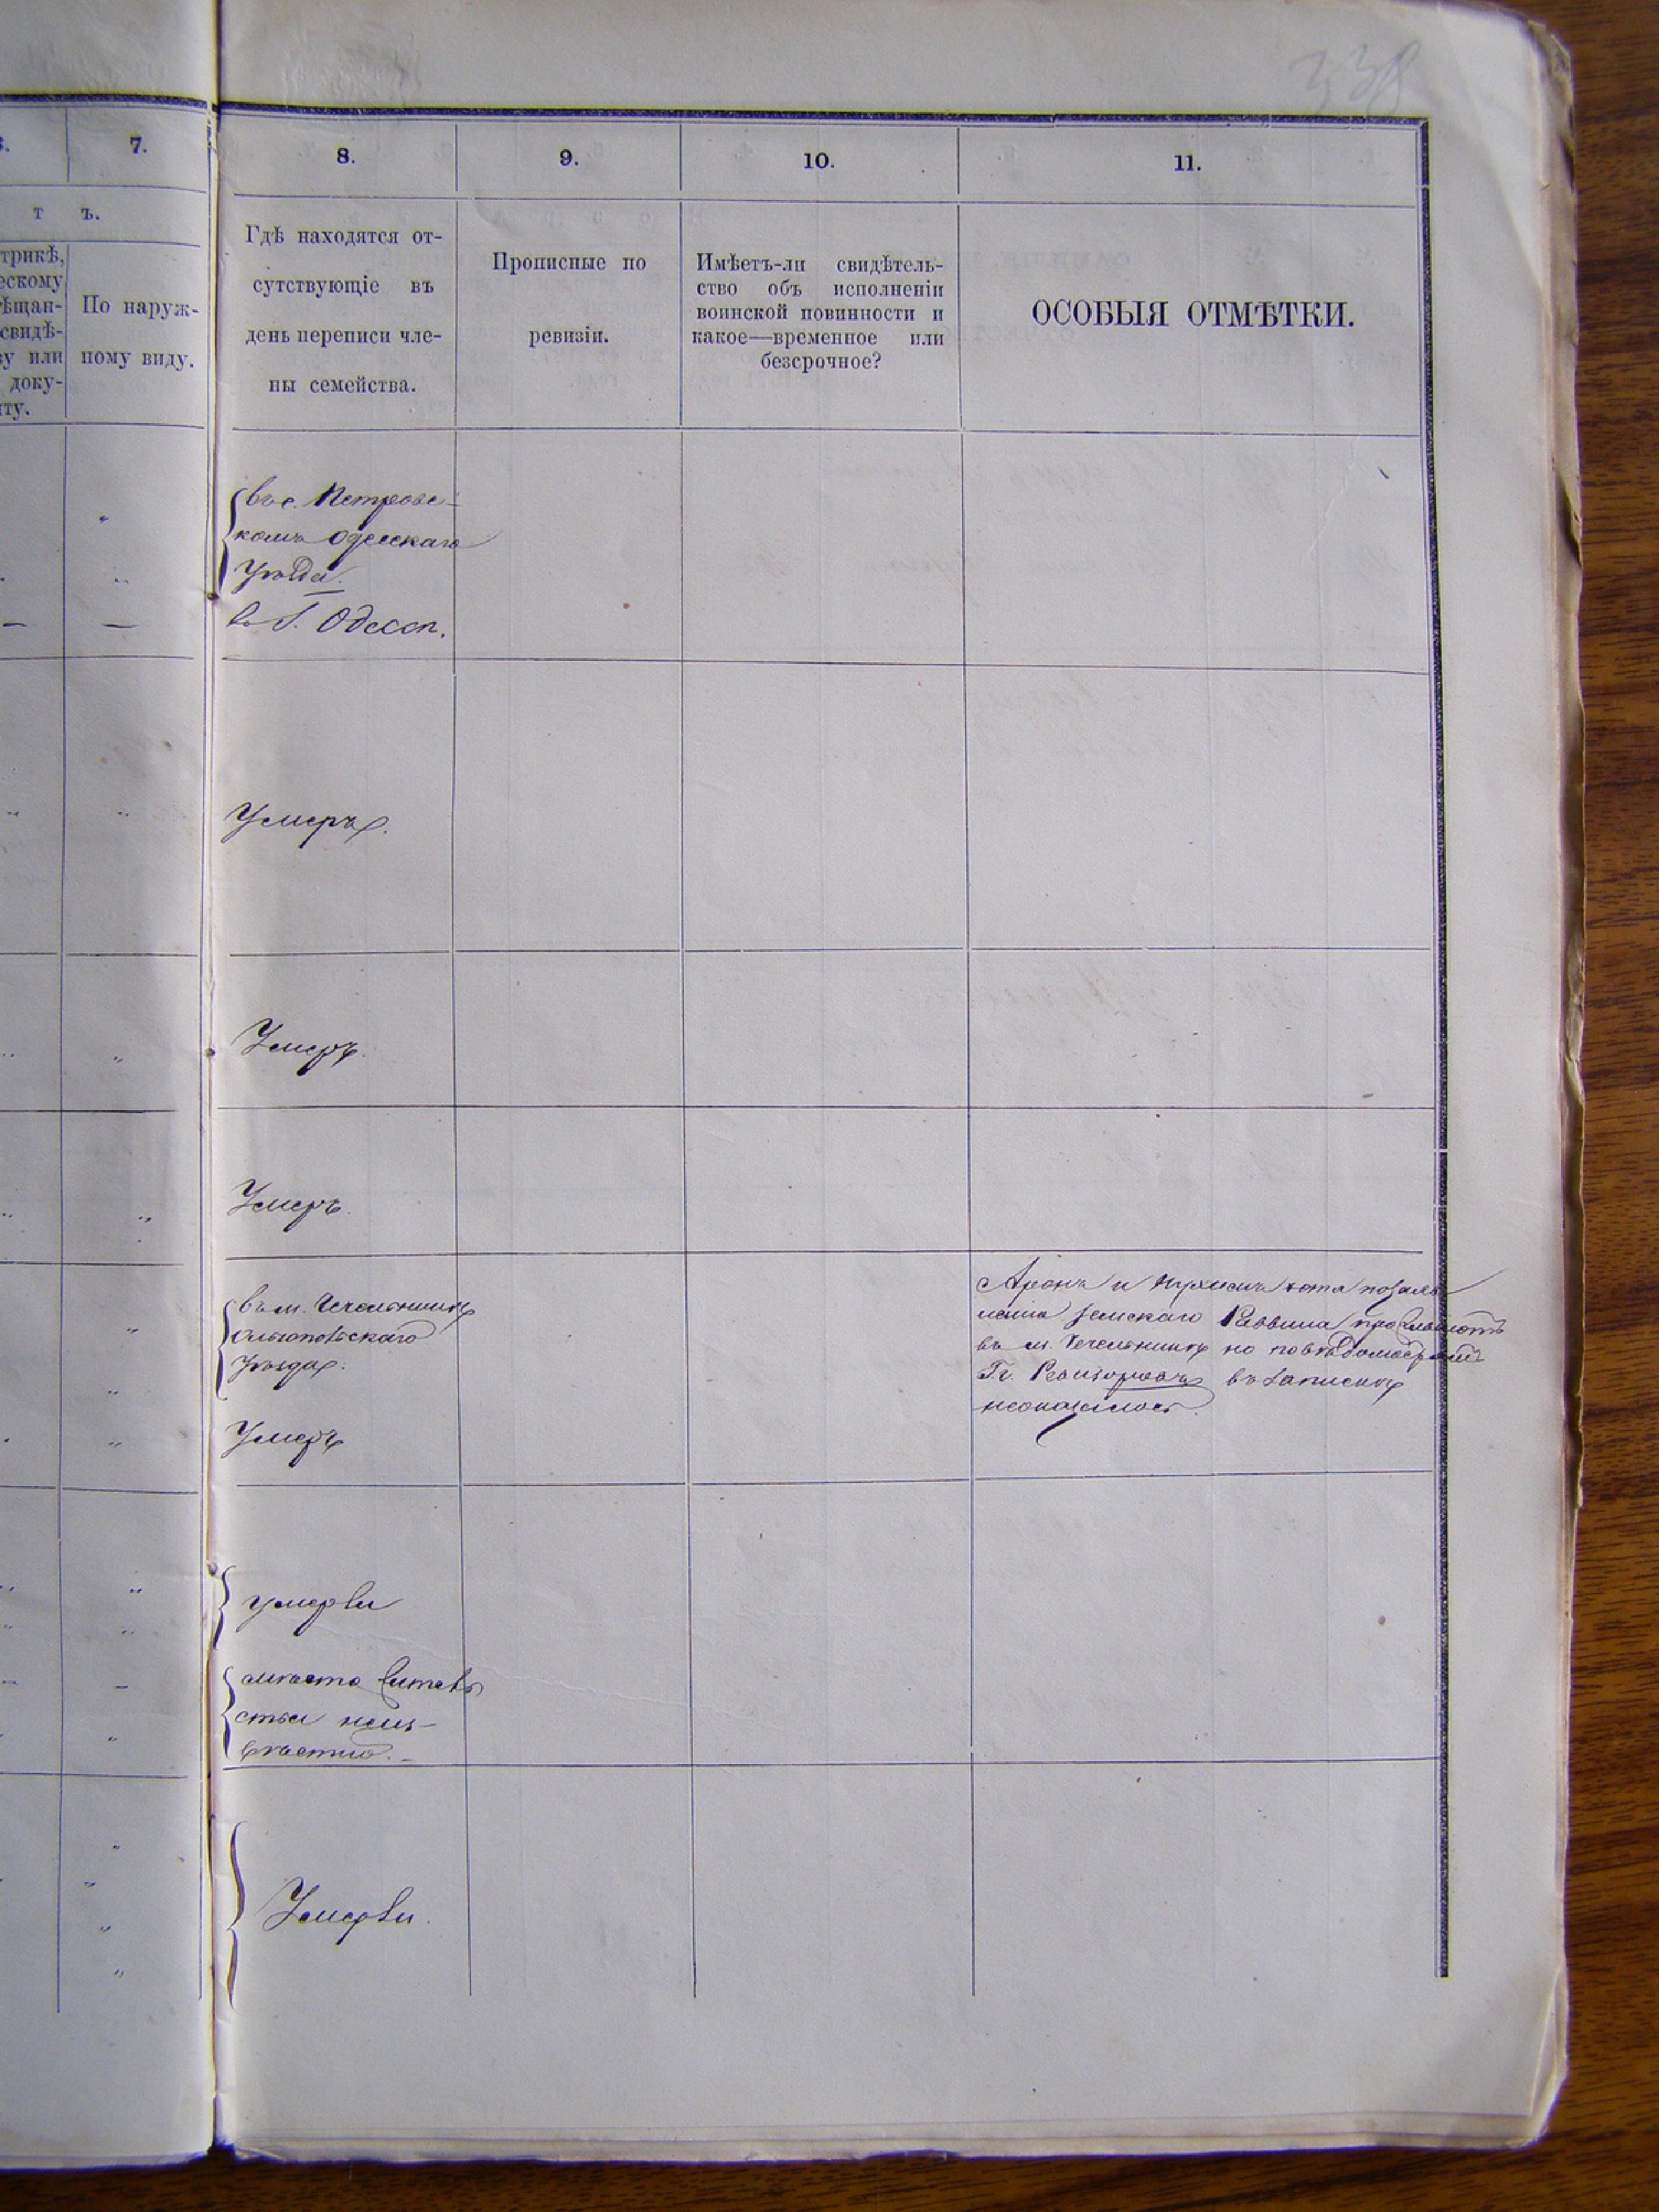 338
7.
8.
9.
10.
11.
т ъ.
трикѣ,
ескому
ѣщан-
свидѣ-
ву или
доку-
нту.
По наруж-
ному виду.
Гдѣ находятся от-
сутствующіе въ
день переписи чле-
ны семейства.
Прописные по
ревизіи.
Имѣетъ-ли свидѣтель-
ство объ исполненіи
воинской повинности и
какое—временное или
безсрочное?
ОСОБЫЯ ОТМѢТКИ.
въ с. Петровс-
комъ Одесскаго
уѣзда.
въ Г. Одессѣ.
Умеръ.
Умеръ.
Умеръ.
въ м. Чечельникѣ
Ольгопольскаго
уѣзда.
Аронъ и хотя по заяв-
ленію Раввина проживаютъ
въ м. Чечельникѣ но по
Гг. въ записку
не оказалось.
Умеръ
умерли
мѣсто житель
ства неиз-
вѣстно.
Умерли.